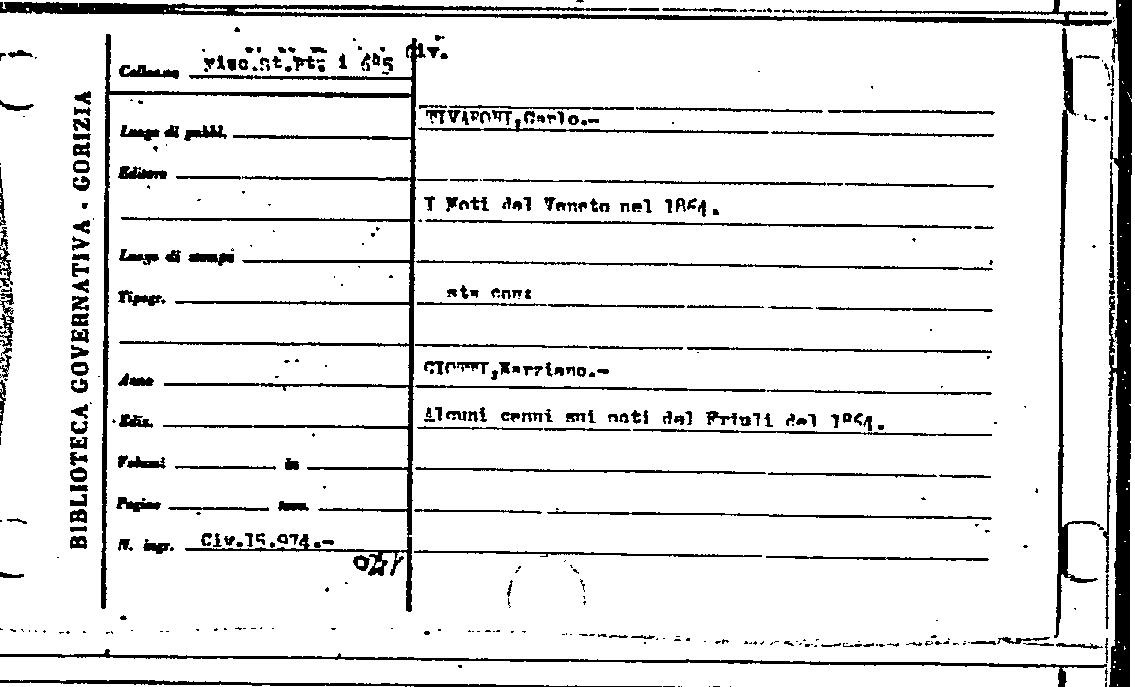 BIBLIOTECA GOVERNATIVA - GORIZIA
Collocaz. Misc.St.Pt. i 685 Civ.
Luogo di pubbl.
Editore
Luogo di stampa
Tipogr.
Anno
Ediz.
Volumi in
Pagine tav.
N. ingr. Civ.15.974.-
TIVARONI,Carlo.-
I Moti del Veneto nel 1864.
sta con:
CIOTTI,Marziano.-
Alcuni cenni sui moti del Friuli del 1864.